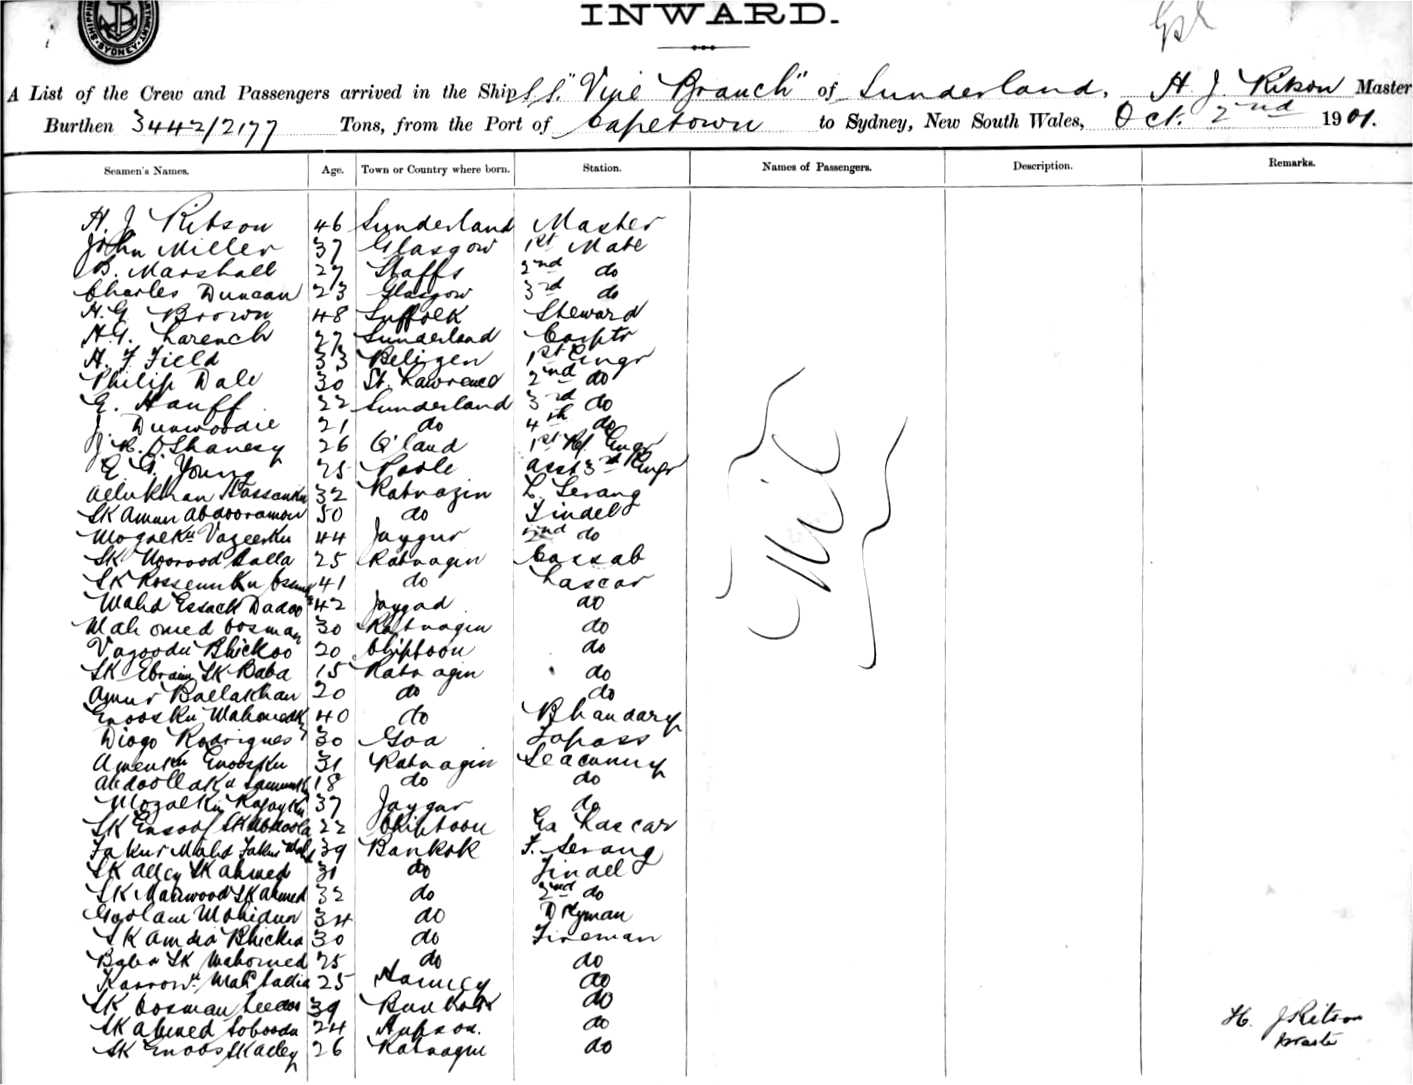 INWARD.
A List of the Crew and Passengers arrived in the Ship S.S. "Vine Branch" of Sunderland, H. J. Ritson Master
Burthen 3442/2177 Tons, from the Port of Capetown to Sydney, New South Wales, Oct. 2nd 1901.
Seamen's Names. Age. Town or Country where born. Station. Names of Passengers. Description. Remarks.
H. J. Ritson 46 Sunderland Master
John Miller 37 Glasgow 1st Mate
B. Marshall 27 Staffs 2nd do
Charles Duncan 23 Glasgow 3rd do
H. G. Brown 48 Suffolk Steward
27 Sunderland Carptr
H. F. Field 33 1st Engr
Philip Dale 30 St. Lawrence 2nd do
G. Hauff 22 Sunderland 3rd do
J. Dunwoodie 21 do 4th do
J. R. O'Shanesy 26 Q'land 1st Rf. Engr
E. G. Young 25 Poole asst 3rd Engr
32 Ratnagin L. Serang
SK Amun Abdooramon 50 do Tindel
44 Jaygur 2nd do
SK 25 Ratnagin Cassab
SK 41 do Lascar
Mahd Essack Dadoo 42 Jaygad do
Mahomed Cosman 30 Ratnagin do
Vagoodu Bhickoo 20 Chiptoon do
SK Ebraim SK Baba 15 Ratnagin do
Amur Ballakhan 20 do do
40 do Bhandary
Diogo Rodrigues 30 Goa Topass
31 Ratnagin Seacunny
18 do do
37 Jaygar do
SK Ensoof SK Abdoola 22 Chiptoon Ex Lascar
Fakur Mahd Fakur Mahd 39 Bankok F. Serang
SK Alley SK Ahmed 31 do Tindel
SK Mahmood SK Ahmed 32 do 2nd do
Goolam Mohidun 34 do D Kyman
SK Amdia Bhickia 30 do Fireman
Baba SK Mahomed 25 do do
25 do
SK Cosman 39 Bankok do
SK Ahmed 24 do
SK Enoos SK Alley 26 Ratnagin do
Nil
H. J Ritson
Master